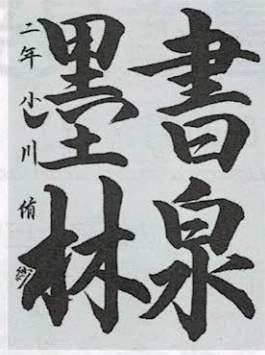 書泉
墨林
二年 小川 侑紗